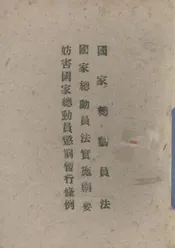 國家總動員法
國家總動員法實施綱要
妨害國家總動員懲罰暫行條例